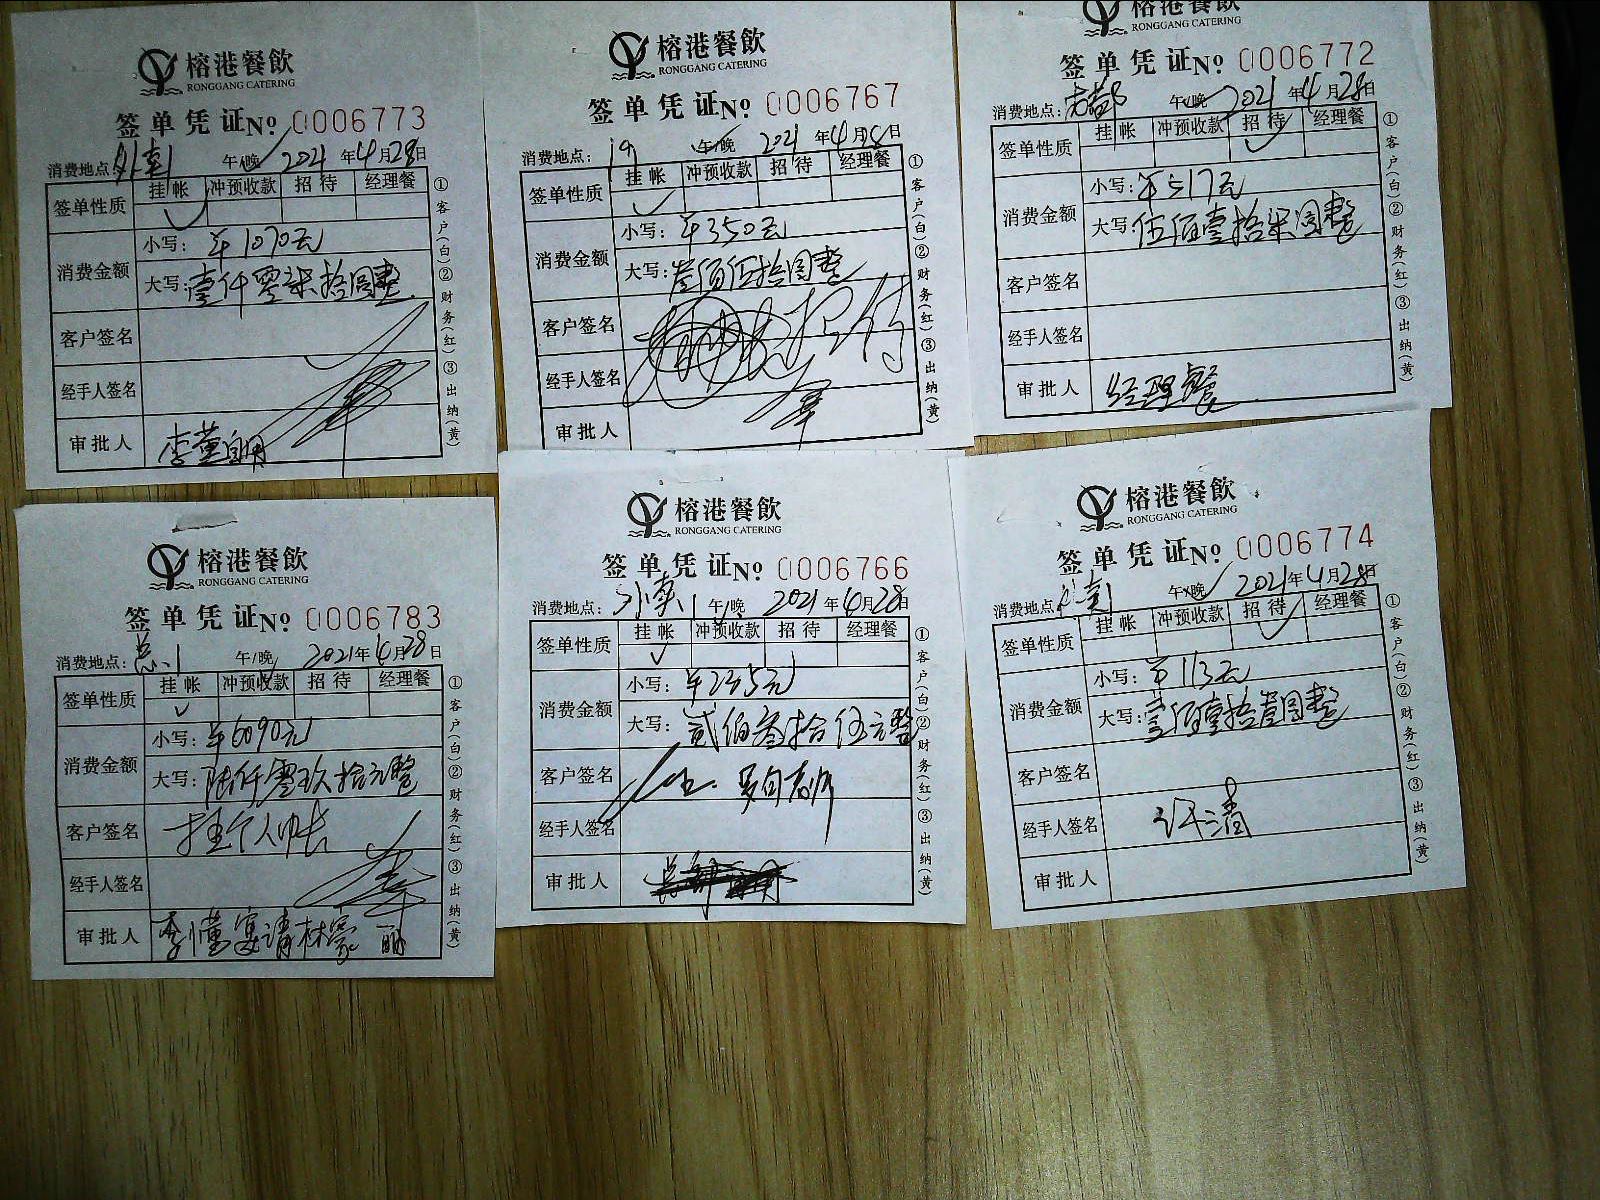 榕港餐飲
RONGGANG CATERING
签单凭证No 0006773
消费地点：外卖 午/晚 2021年4月28日
签单性质 挂帐 冲预收款 招待 经理餐
消费金额
小写：¥1070元
大写：壹仟零柒拾圆整
客户签名
经手人签名
审批人 李董
①客户(白)②财务(红)③出纳(黄)
榕港餐飲
RONGGANG CATERING
签单凭证No 0006767
消费地点： 午/晚 2021年4月日
签单性质 挂帐 冲预收款 招待 经理餐
消费金额
小写：¥350元
大写：叁佰伍拾圆整
客户签名
经手人签名
审批人
①客户(白)②财务(红)③出纳(黄)
榕港餐飲
RONGGANG CATERING
签单凭证No 0006772
消费地点： 午/晚 2021年4月28日
签单性质 挂帐 冲预收款 招待 经理餐
消费金额
小写：¥517元
大写：伍佰壹拾柒圆整
客户签名
经手人签名
审批人 经理餐
①客户(白)②财务(红)③出纳(黄)
榕港餐飲
RONGGANG CATERING
签单凭证No 0006783
消费地点： 午/晚 2021年4月28日
签单性质 挂帐 冲预收款 招待 经理餐
消费金额
小写：¥6090元
大写：陆仟零玖拾元整
客户签名 挂个人帐
经手人签名
审批人 李懂宴请林家
①客户(白)②财务(红)③出纳(黄)
榕港餐飲
RONGGANG CATERING
签单凭证No 0006766
消费地点：外卖 午/晚 2021年4月28日
签单性质 挂帐 冲预收款 招待 经理餐
消费金额
小写：¥235元
大写：贰佰叁拾伍元整
客户签名
经手人签名
审批人
①客户(白)②财务(红)③出纳(黄)
榕港餐飲
RONGGANG CATERING
签单凭证No 0006774
消费地点：外卖 午/晚 2021年4月28日
签单性质 挂帐 冲预收款 招待 经理餐
消费金额
小写：¥113元
大写：壹佰壹拾叁圆整
客户签名
经手人签名 许清
审批人
①客户(白)②财务(红)③出纳(黄)